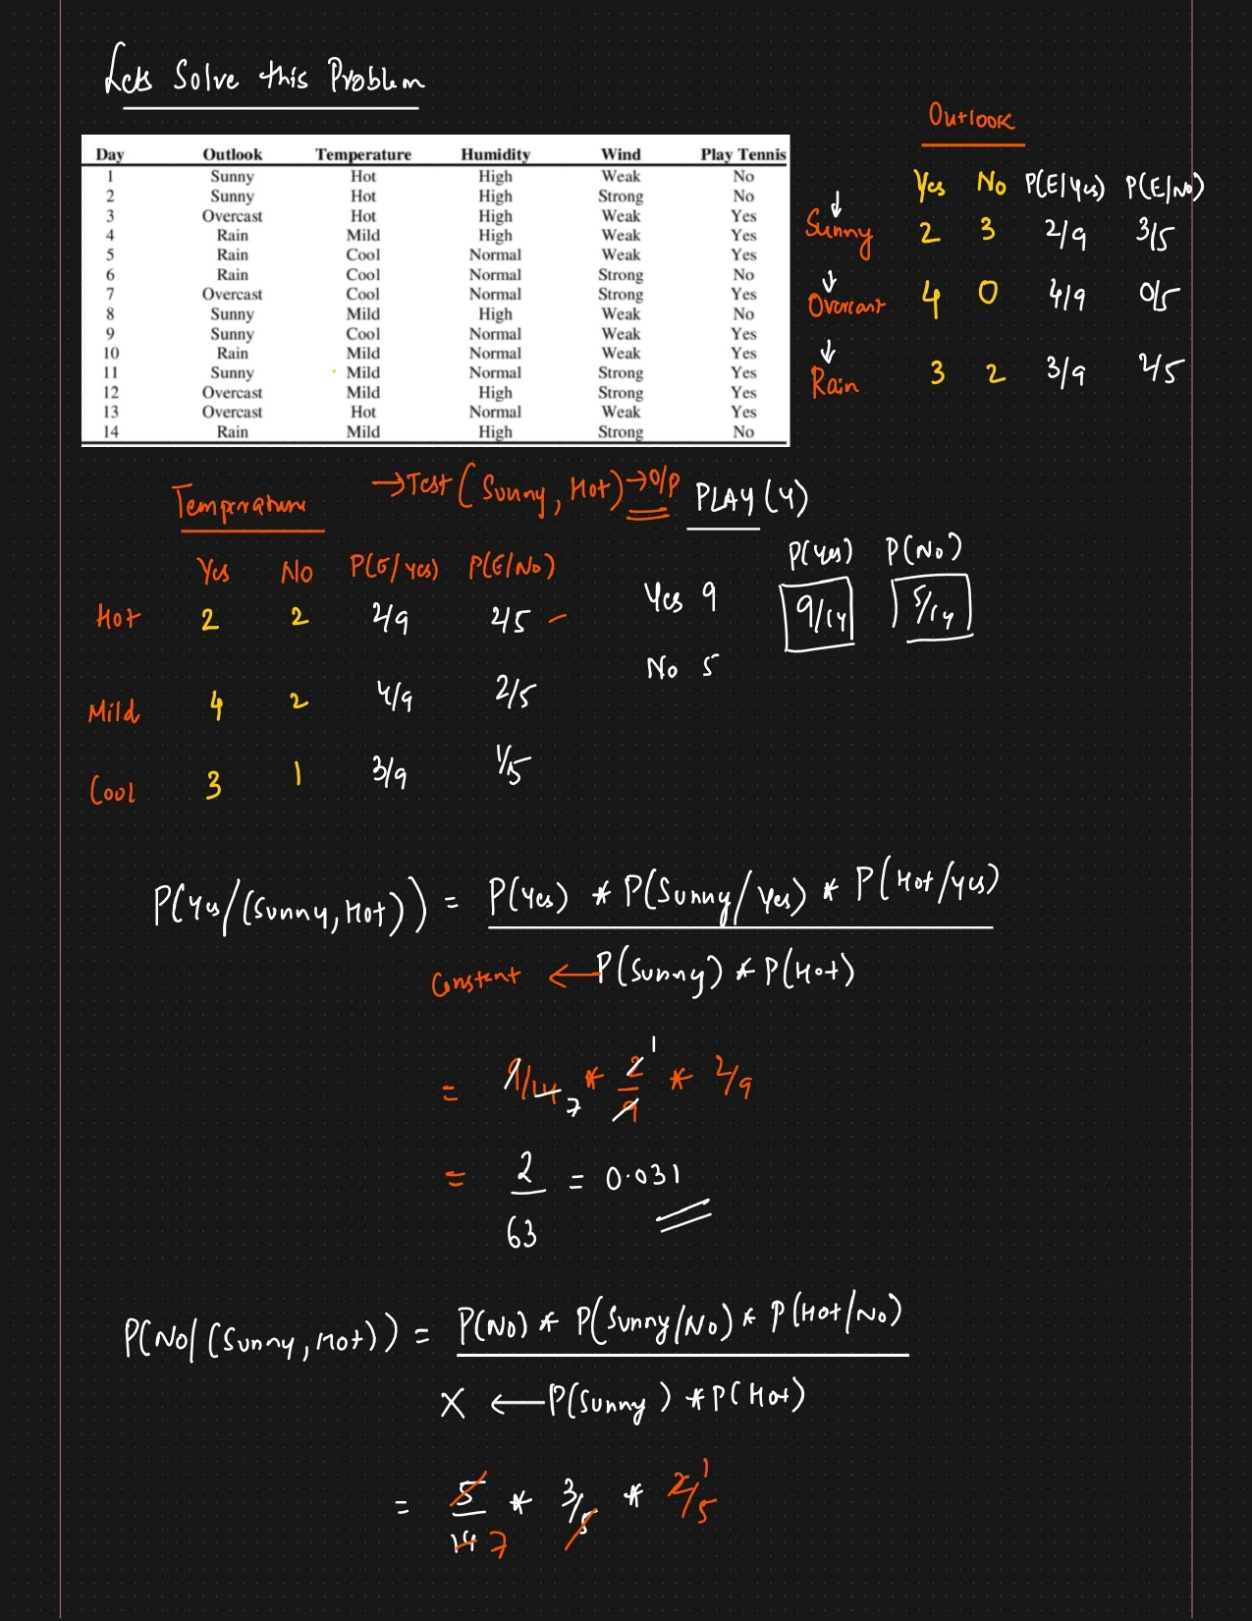 Lets Solve this Problem
Outlook
Day Outlook Temperature Humidity Wind Play Tennis
1 Sunny Hot High Weak No
2 Sunny Hot High Strong No
3 Overcast Hot High Weak Yes
4 Rain Mild High Weak Yes
5 Rain Cool Normal Weak Yes
6 Rain Cool Normal Strong No
7 Overcast Cool Normal Strong Yes
8 Sunny Mild High Weak No
9 Sunny Cool Normal Weak Yes
10 Rain Mild Normal Weak Yes
11 Sunny Mild Normal Strong Yes
12 Overcast Mild High Strong Yes
13 Overcast Hot Normal Weak Yes
14 Rain Mild High Strong No
Yes No P(E/Yes) P(E/No)
Sunny 2 3 2/9 3/5
Overcast 4 0 4/9 0/5
Rain 3 2 3/9 2/5
→ Test (Sunny, Hot) → O/P
Temperature
Yes No P(E/Yes) P(E/No)
Hot 2 2 2/9 2/5
Mild 4 2 4/9 2/5
Cool 3 1 3/9 1/5
PLAY (Y)
P(Yes) P(No)
Yes 9 9/14 5/14
No 5
P(Yes/(Sunny, Hot)) = P(Yes) * P(Sunny/Yes) * P(Hot/Yes)
Constant ← P(Sunny) * P(Hot)
= 9/14 7 * 2/9 1 * 2/9
= 2/63 = 0.031
P(No/(Sunny, Hot)) = P(No) * P(Sunny/No) * P(Hot/No)
X ← P(Sunny) * P(Hot)
= 5/14 7 * 3/5 * 2/5 1